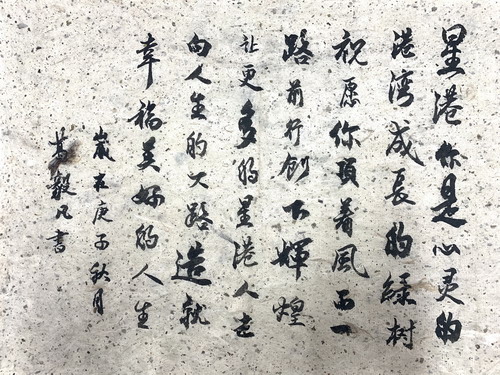 星港你是心灵的
港湾成长的绿树
祝愿你顶着风雨一
路前行创下煇煌
让更多的星港人走
向人生的大路造就
幸福美好的人生
歲在庚子秋月
毅凡书